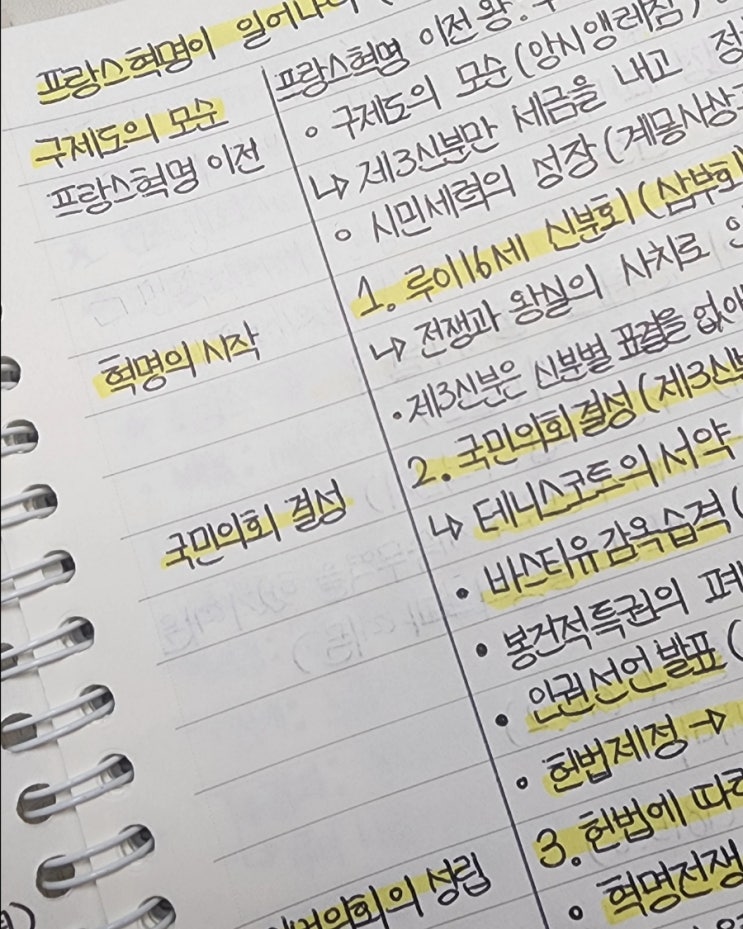 프랑스혁명이 일어나
구제도의 모순
프랑스혁명 이전
혁명의 시작
국민의회 결성
의회의 성립
프랑스혁명 이전 왕.
○ 구제도의 모순(앙시앵레짐)
↳ 제3신분만 세금을 내고
○ 시민세력의 성장(계몽사상
1. 루이16세 신분회(삼부회
↳ 전쟁과 왕실의 사치로
• 제3신분은 신분별 표결을 없애
2. 국민의회 결성(제3신분
↳ 테니스코트의 서약
• 바스티유 감옥 습격(
• 봉건적 특권의 폐
• 인권선언 발표(
○ 헌법제정 →
3. 헌법에 따라
○ 혁명전쟁